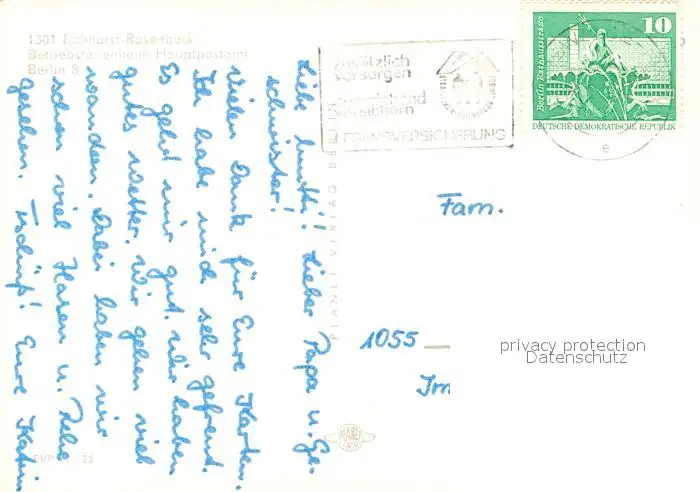 1301 Eichhorst-Rosenbeck
Betriebsferienheim Hauptpostamt
Berlin 8
Liebe Mutti! Lieber Papa u. Ge-
schwister!
Vielen Dank für Eure Karten.
Ich habe mich sehr gefreut.
Es geht mir gut. Wir haben
gutes Wetter. Wir gehen viel
wandern. Dabei haben wir
schon viel Hasen u. Rehe
gesehen. Tschüß! Eure Katrin
zusätzlich
versorgen
versichern
VERSICHERUNG
10
Berlin Rathausstraße
DEUTSCHE DEMOKRATISCHE REPUBLIK
e
PLANET VERLAG BERLIN
Fam.
1055
Im
privacy protection
Datenschutz
EVP 25